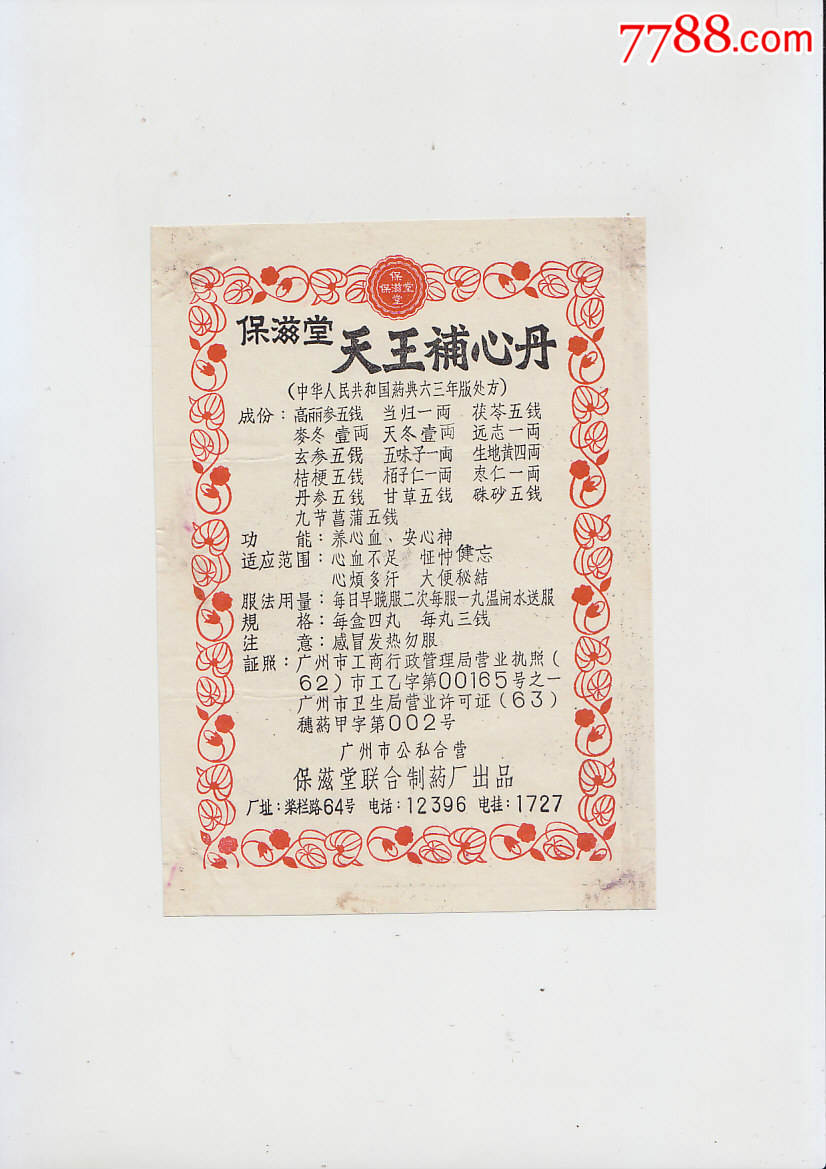 7788.com
保
保滋堂
堂
保滋堂 天王補心丹
（中华人民共和国药典六三年版处方）
成份：高丽参五钱 当归一両 茯苓五钱
麥冬壹両 天冬壹両 远志一両
玄参五钱 五味子一両 生地黄四両
桔梗五钱 栢子仁一両 枣仁一両
丹参五钱 甘草五钱 硃砂五钱
九节菖蒲五钱
功能：养心血、安心神
适应范围：心血不足 怔忡健忘
心煩多汗 大便秘結
服法用量：每日早晚服二次每服一丸温闹水送服
規格：每盒四丸 每丸三钱
注意：感冒发热勿服
証照：广州市工商行政管理局营业执照（
62）市工乙字第00165号之一
广州市卫生局营业许可证（63）
穗药甲字第002号
广州市公私合营
保滋堂联合制药厂出品
厂址：桨栏路64号 电话：12396 电挂：1727